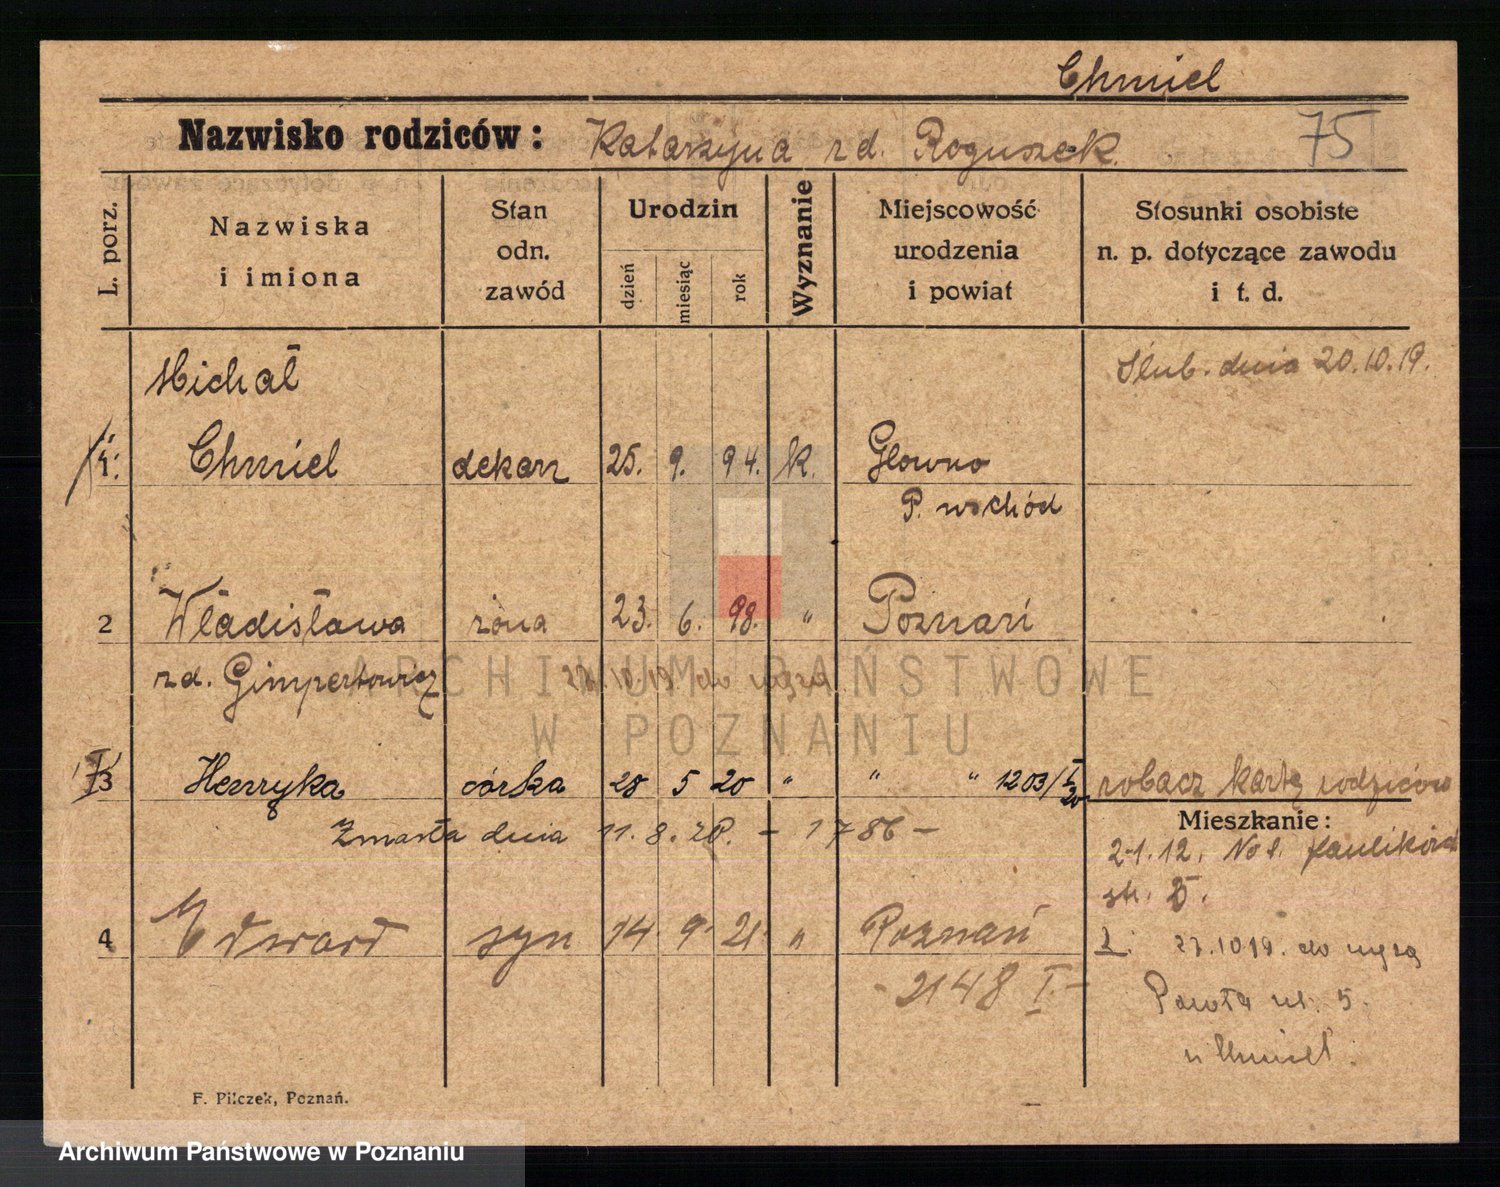 Chmiel
Nazwisko rodziców: Katarzyna rd. Roguszek.
75
L. porz.
Nazwiska i imiona
Stan odn. zawód
Urodzin
dzień
miesiąc
rok
Wyznanie
Miejscowość urodzenia i powiat
Stosunki osobiste n. p. dotyczące zawodu i t. d.
Ślub. dnia 20.10.19.
Michał
1. Chmiel dekarz 25. 9. 94. K. Głowno
P. wschód
2 Władisława żona 23. 6. 98. " Poznań
rd. Gimpertowicz 27.10.19 do męża
3 Henryka córka 28 5 20 " " " 1203/I 20 zobacz kartę rodziców
Zmarła dnia 11.8.20. - 1786 -
Mieszkanie:
21.12.
str. 5.
4 Edward syn 14. 9. 21. " Poznań
- 2148 I. -
2. 27.10 19. do męża
Pawła ul. 5.
u Chmiel.
F. Pilczek, Poznań.
ARCHIWUM PAŃSTWOWE
W POZNANIU
Archiwum Państwowe w Poznaniu